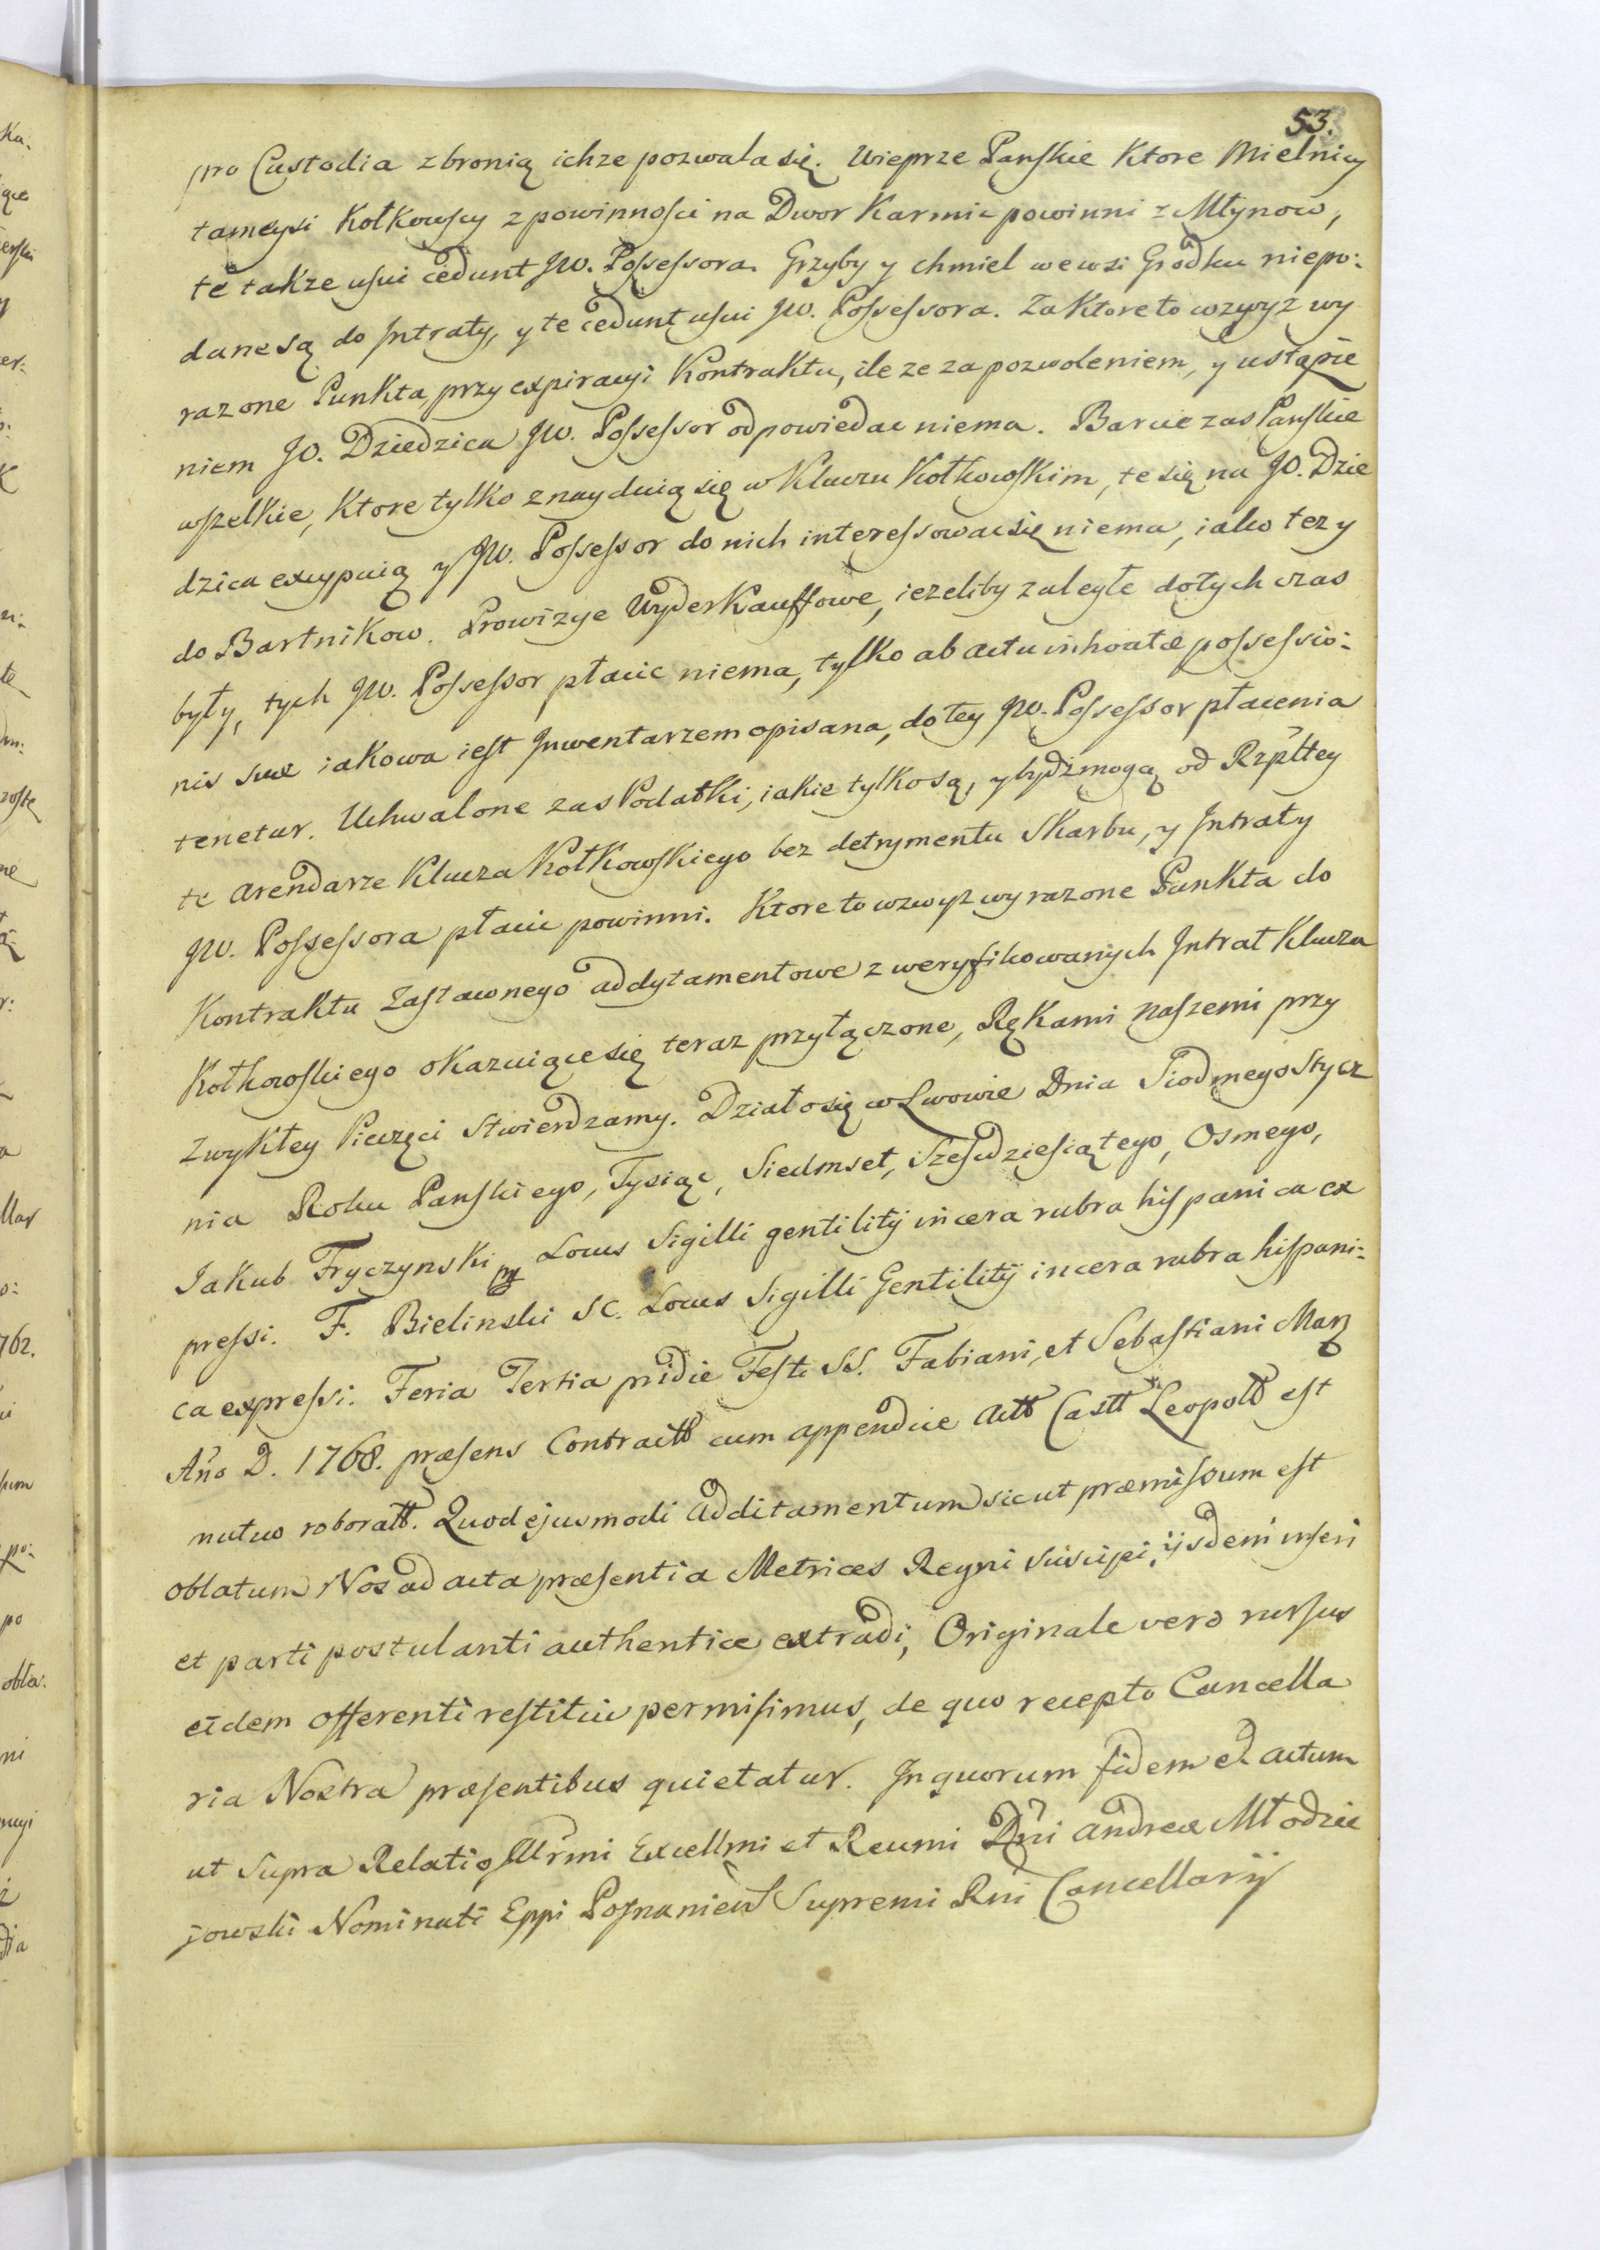 53.
pro Custodia z bronią ichze pozwala się. Wieprze Panskie Ktore Mielnicy
tameysi Kołkowscy z powinnosci na Dwor Karmic powinni z Młynow,
te takze usui cedunt JW. Possessora. Grzyby y chmiel we wsi Grodku niepo:
dane są do Intraty, y te cedunt usui JW. Possessora. Za Ktore to wzwyz wy
razone Punkta przy expiracyi Kontraktu, ile ze za pozwoleniem, y ustąpie
niem JO. Dziedzica JW. Possessor odpowiedac niema. Barcie zas Panskie
wszelkie, Ktore tylko znayduią się w Kluczu Kołkowskim, te się na JO. Dzie
dzica excypuią y JW. Possessor do nich interessowac się niema, iako tez y
do Bartnikow. Prowizye Wyderkauffowe, iezeliby zaległe dotych czas
były, tych JW. Possessor płacic niema, tylko ab actu inhoatæ possessio:
nis suæ iakowa iest Inwentarzem opisana, do tey JW. Possessor płacenia
tenetur. Uchwalone zas Podatki, iakie tylko są, y bydz mogą od Rzpltey
te Arendarze Klucza Kołkowskiego bez detrymentu Skarbu, y Intraty
JW. Possessora płacic powinni. Ktore to wzwyz wyrazone Punkta do
Kontraktu Zastawnego addytamentowe z weryfikowanych Intrat Klucza
Kołkowskiego okazuiące się teraz przyłączone, Rękami naszemi przy
Zwykłey Pieczęci stwierdzamy. Działo się w Lwowie Dnia Siodmego Stycz
nia Roku Panskiego, Tysiąc, Siedmset, Szescdziesiątego, Osmego,
Jakub Fryczynski mp Locus Sigilli gentilitij in cera rubra hispanica ex
pressi. F. Bielinski SC. Locus Sigilli Gentilitij in cera rubra hispani:
ca expressi. Feria Tertia pridie Festi SS. Fabiani, et Sebastiani Marz
Año D. 1768. præsens Contractt cum appendice Actt Castt Leopoltt est
nutuo roboratt. Quod ejusmodi Additamentum sicut præmissum est
oblatum Nos ad acta præsentia Metrices Regni suscipi, ijsdem inseri
et parti postulanti authentice extradi, Originale vero rursus
eidem offerenti restitui permisimus, de quo recepto Cancella
ria Nostra præsentibus quietatur. In quorum fidem et actum
ut supra Relatio Illrmi Excellmi et Reumi Dñi Andreæ Młodzie
jowski Nominati Eppi Posnanien Supremi Rni Cancellarij